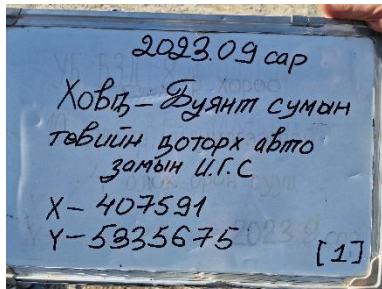 2023.09 сар
Ховд – Буянт сумын
төвийн доторх авто
замын И.Г.С
X – 407591
Y – 5335675
[1]